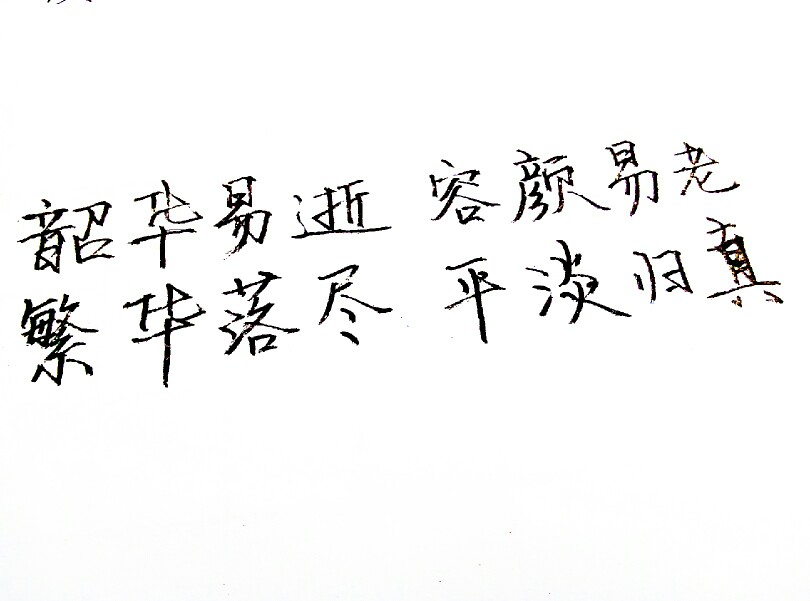 韶华易逝 容颜易老
繁华落尽 平淡归真